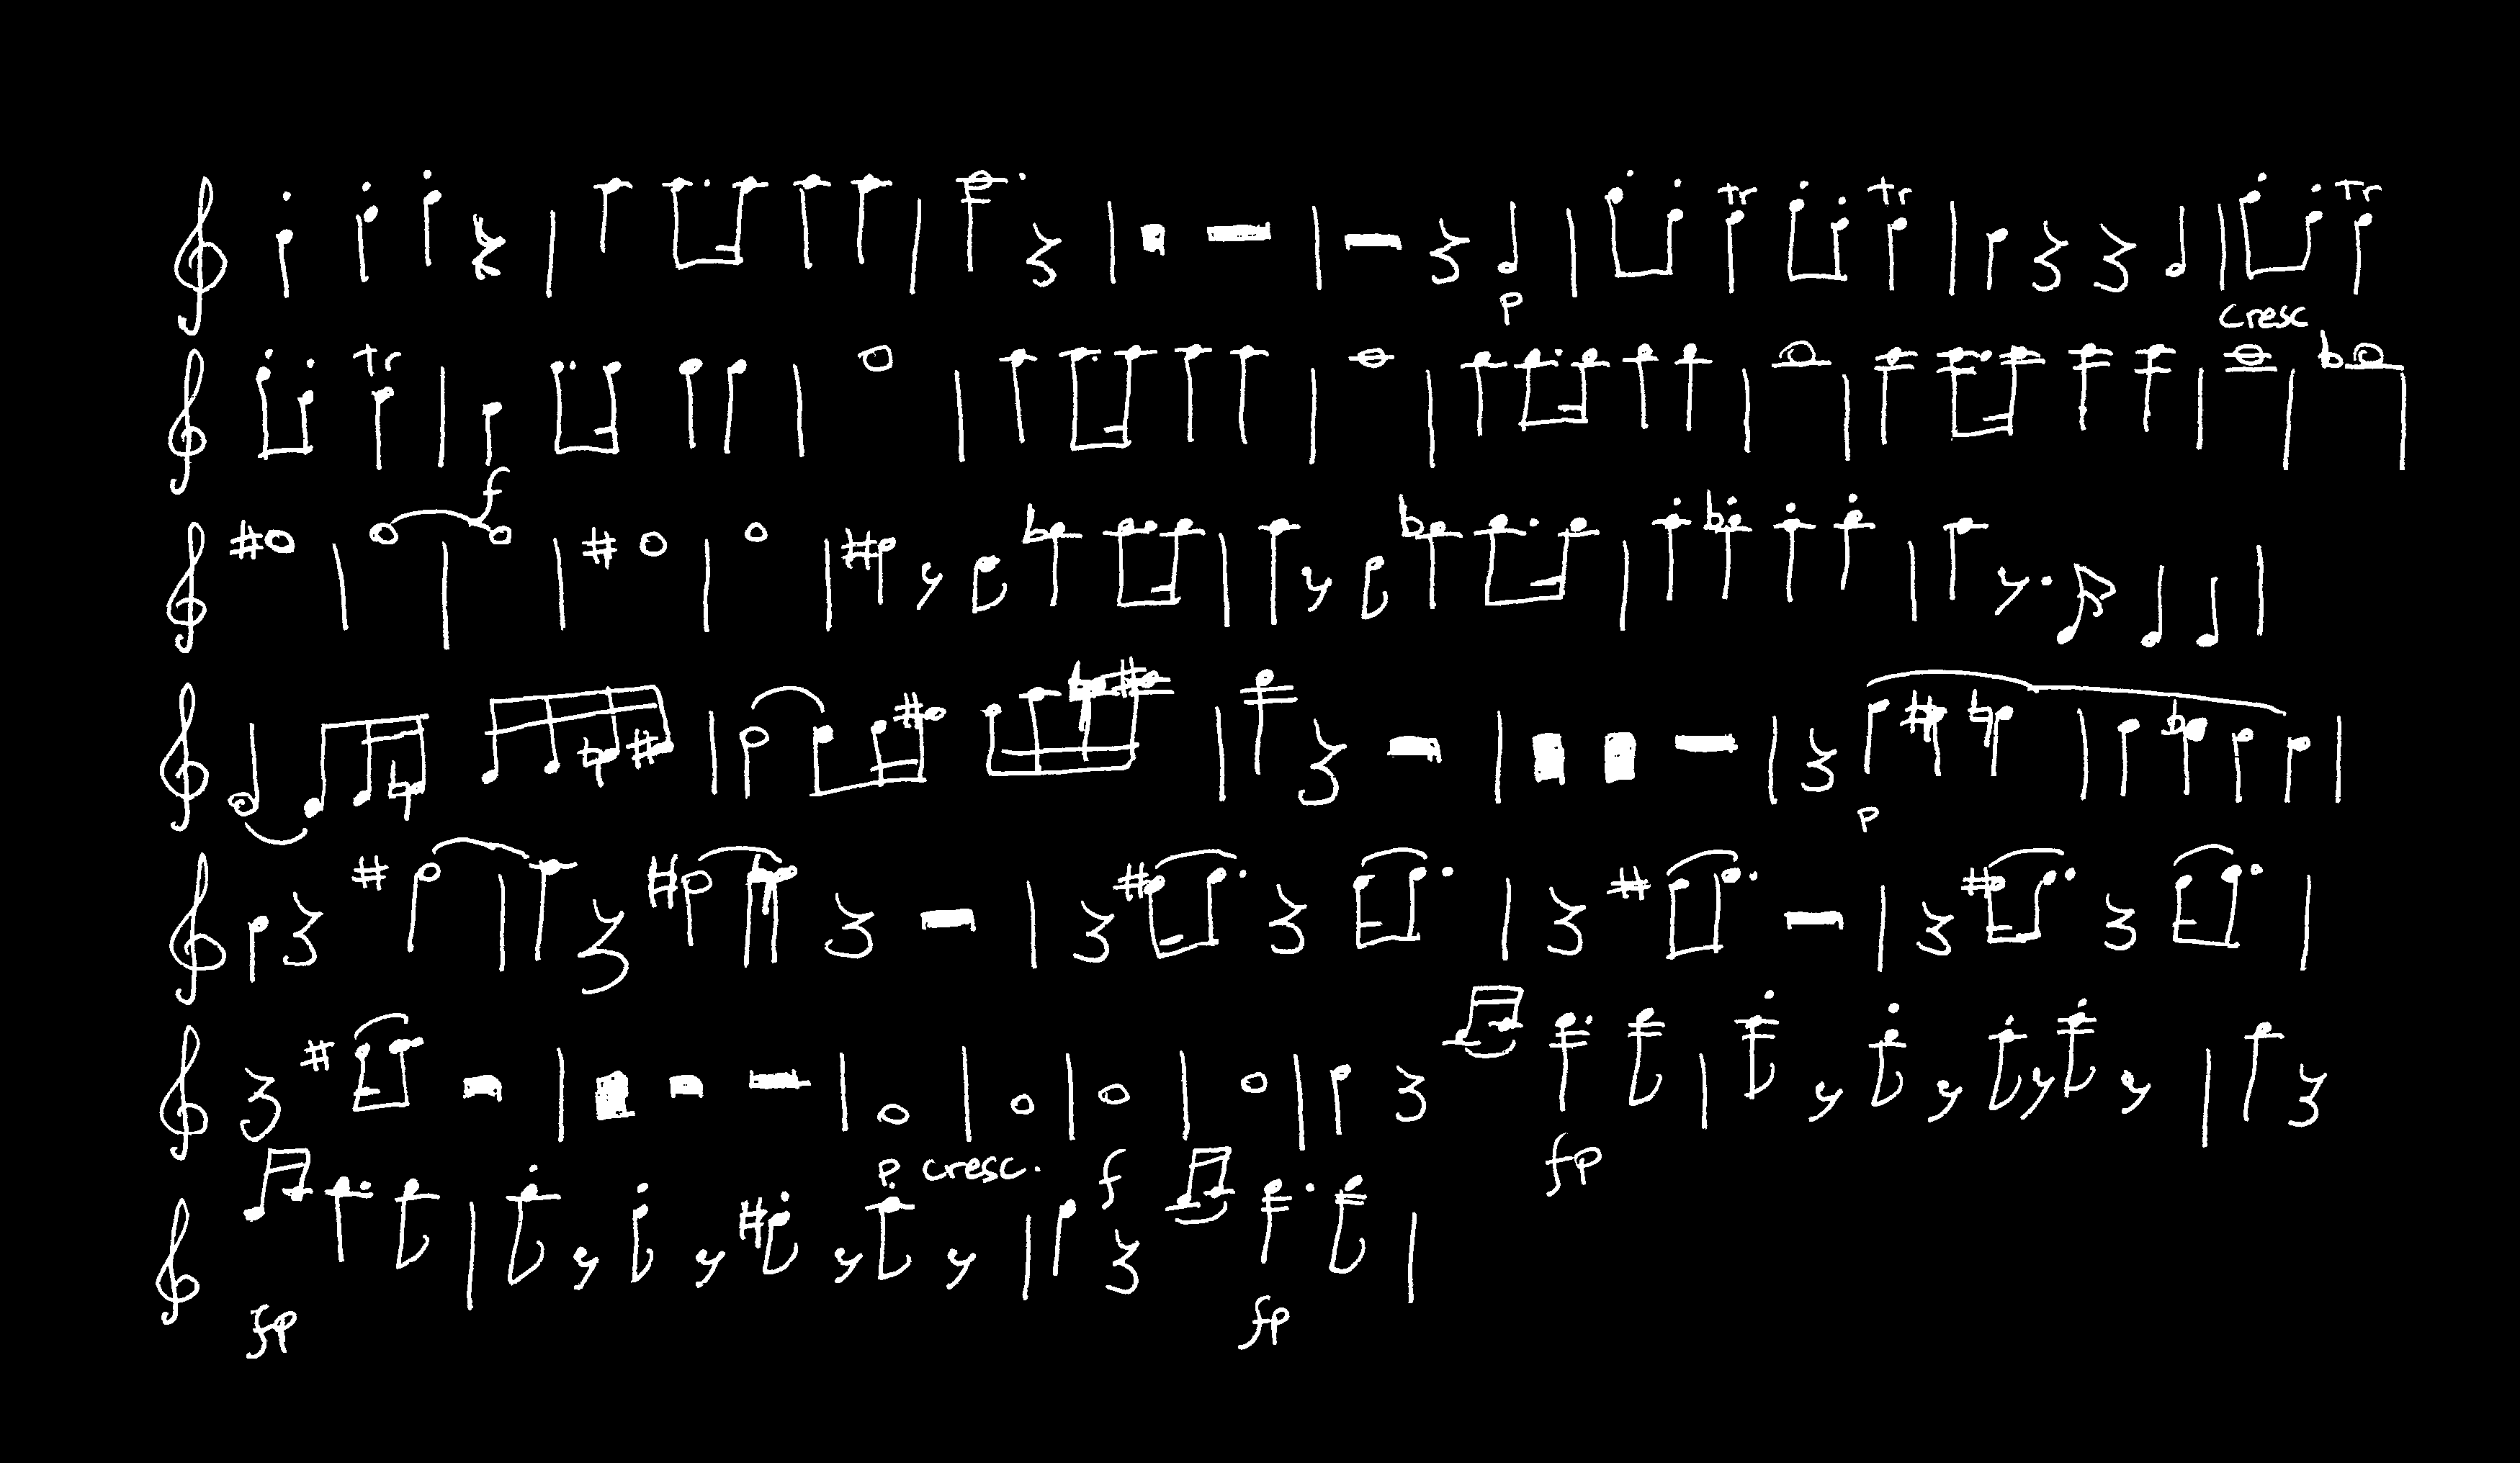 tr tr tr
p cresc
tr
f
p
p cresc. f fp
fp fp